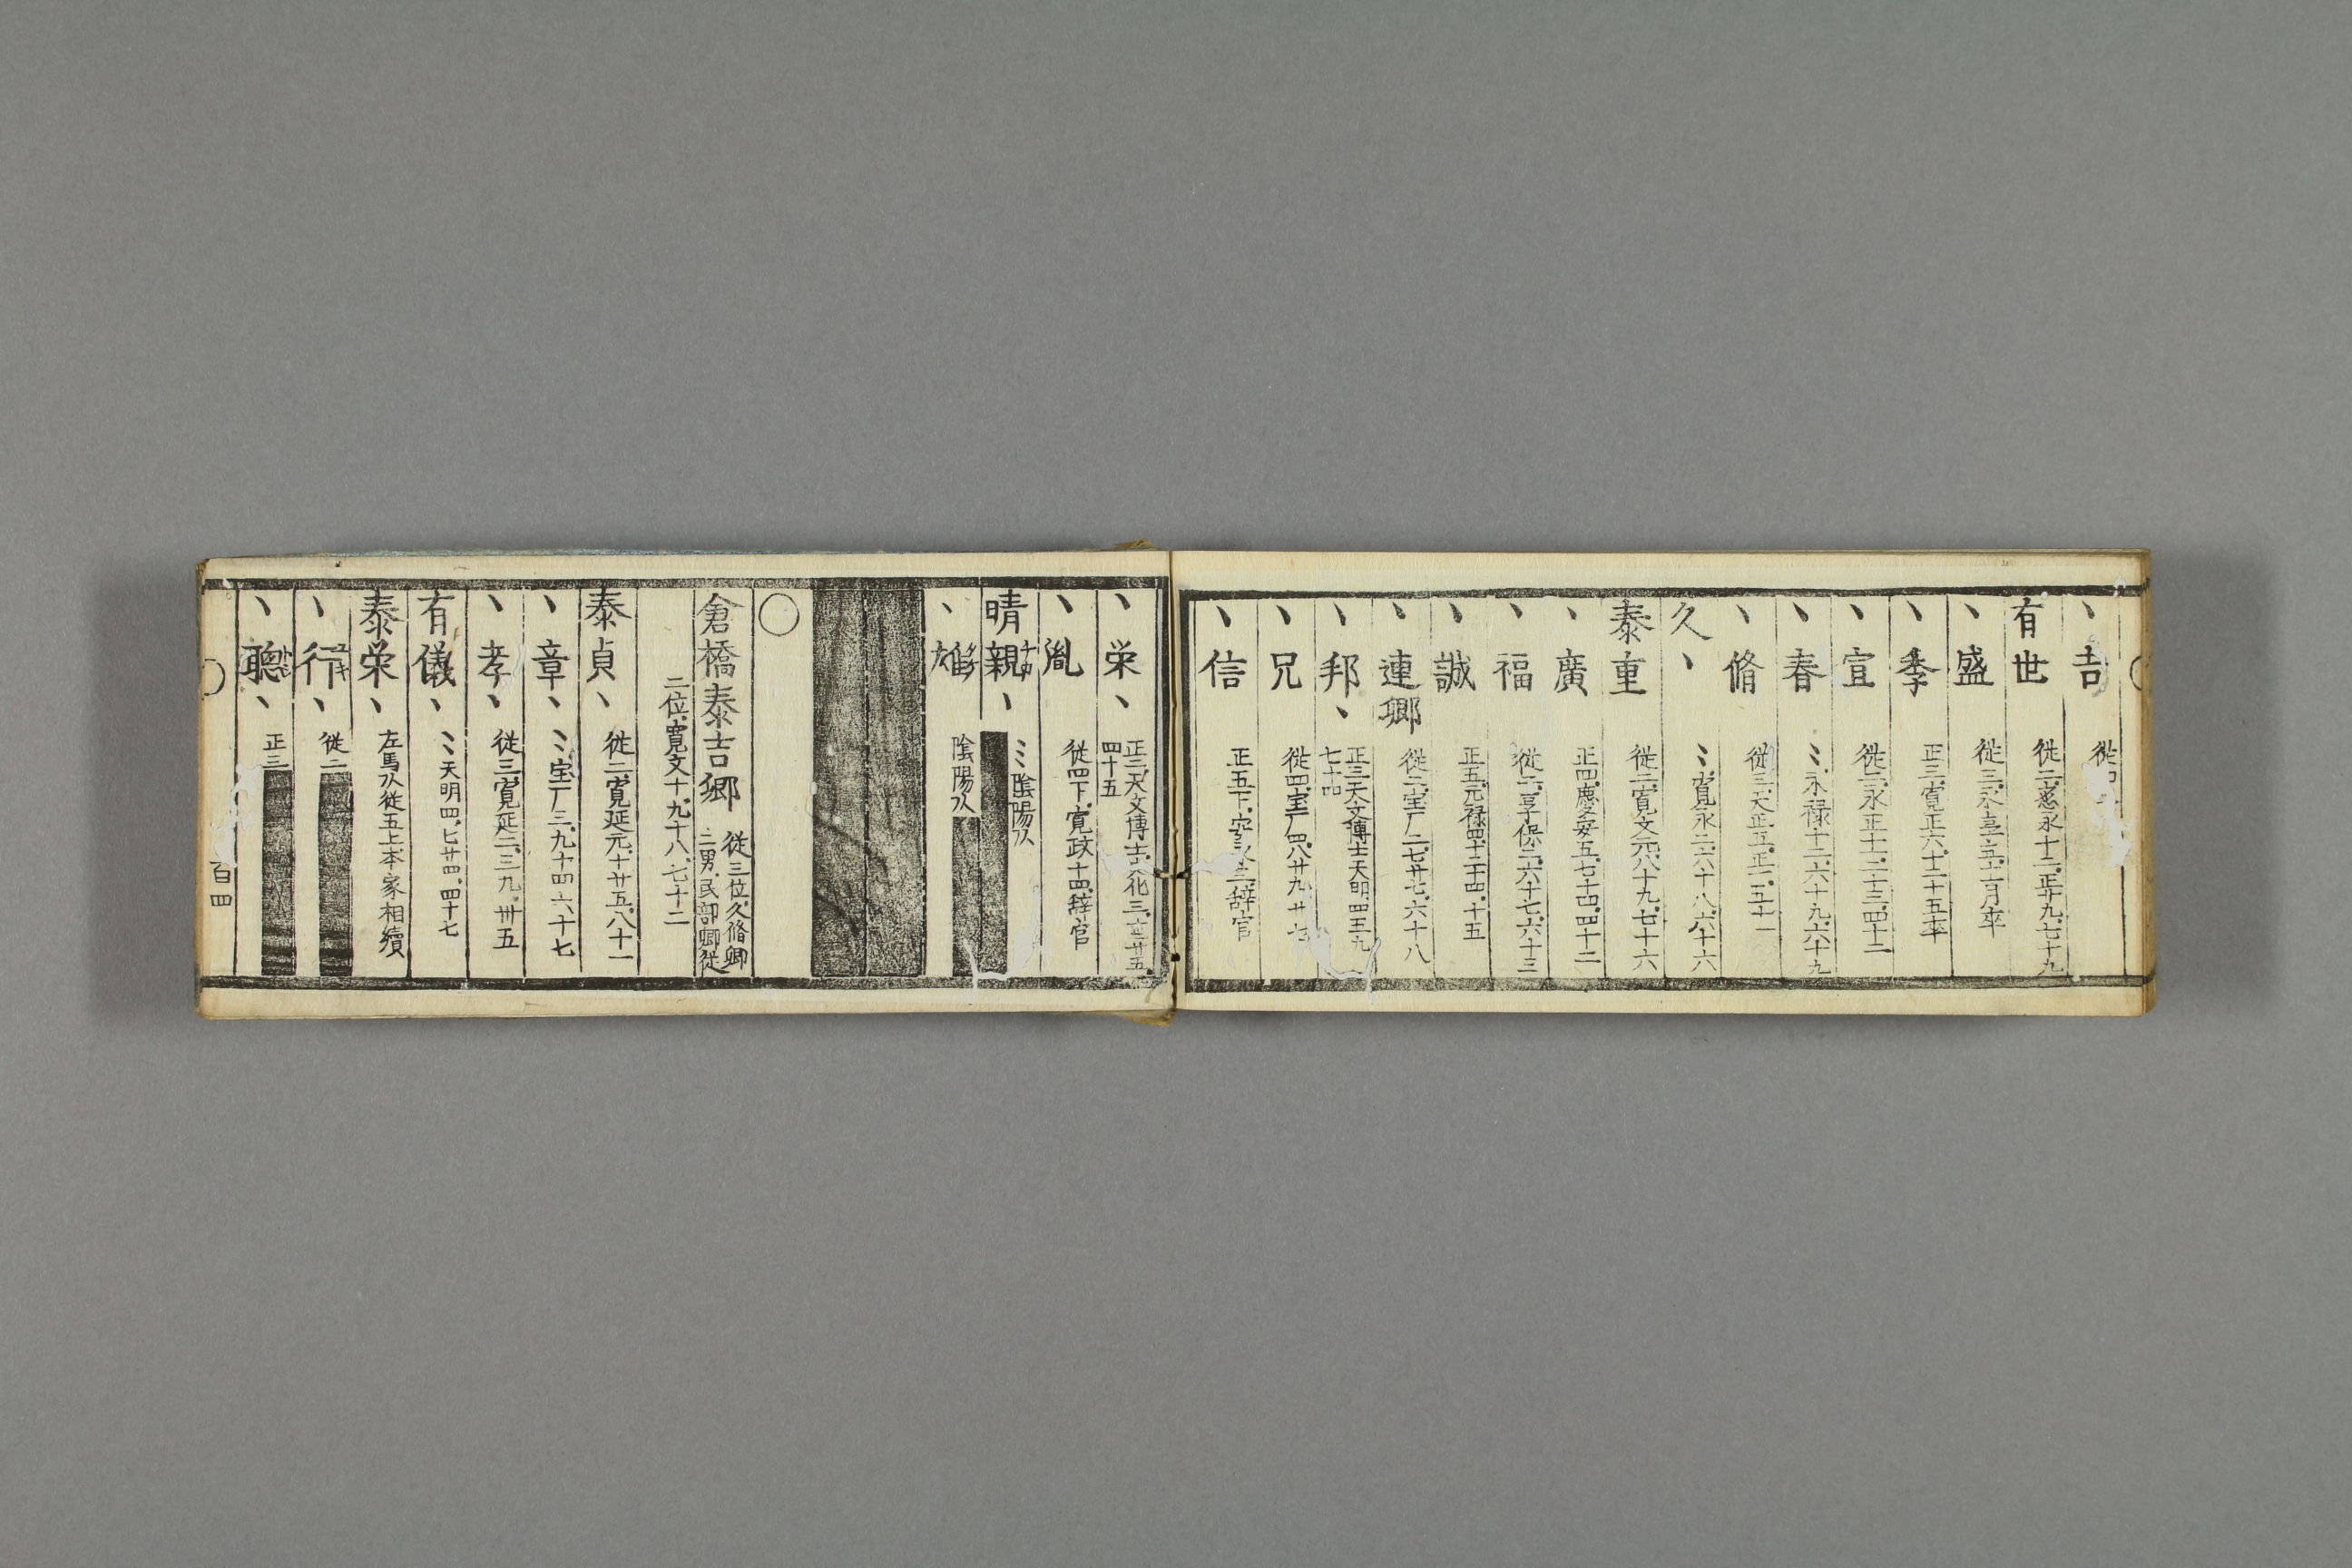 丶吉 従四
有世 従二應永十二正廿九七十九
丶盛 従三永享五十一月卒
丶季 正三寛正六十二十五卒
丶宣 従二永正十一二十三四十二
丶春 〻永禄十二六十九六十九
丶脩 従三天正五正二五十一
久丶 〻寛永二六十八六十六
泰重 従二寛文元八十九七十六
丶廣 正四慶安五七十四四十二
丶福 従二享保二六十七六十三
丶誠 正五元禄四十二十四十五
丶連卿 従二宝厂二七廿七六十八
丶邦丶 正三天文博士天明四五九
七十四
丶兄 従四宝厂四八廿九廿七
丶信 正五下辞官
丶栄丶 正三天文博士文化三廿五
四十五
丶胤 従四下寛政十四辞官
晴親丶 〻陰陽㕝
丶雄 陰陽㕝
○
倉橋泰吉卿 従三位久脩卿
二男民部卿従
二位寛文十九十八七十二
泰貞丶 従二寛延元十廿五八十一
丶章丶 〻宝厂三九十四六十七
丶孝丶 従三寛延二三九卅五
有儀丶 〻天明四七廿四四十七
泰栄丶 左馬㕝従五上本家相續
丶行丶 従二
丶聰丶 正三
百四